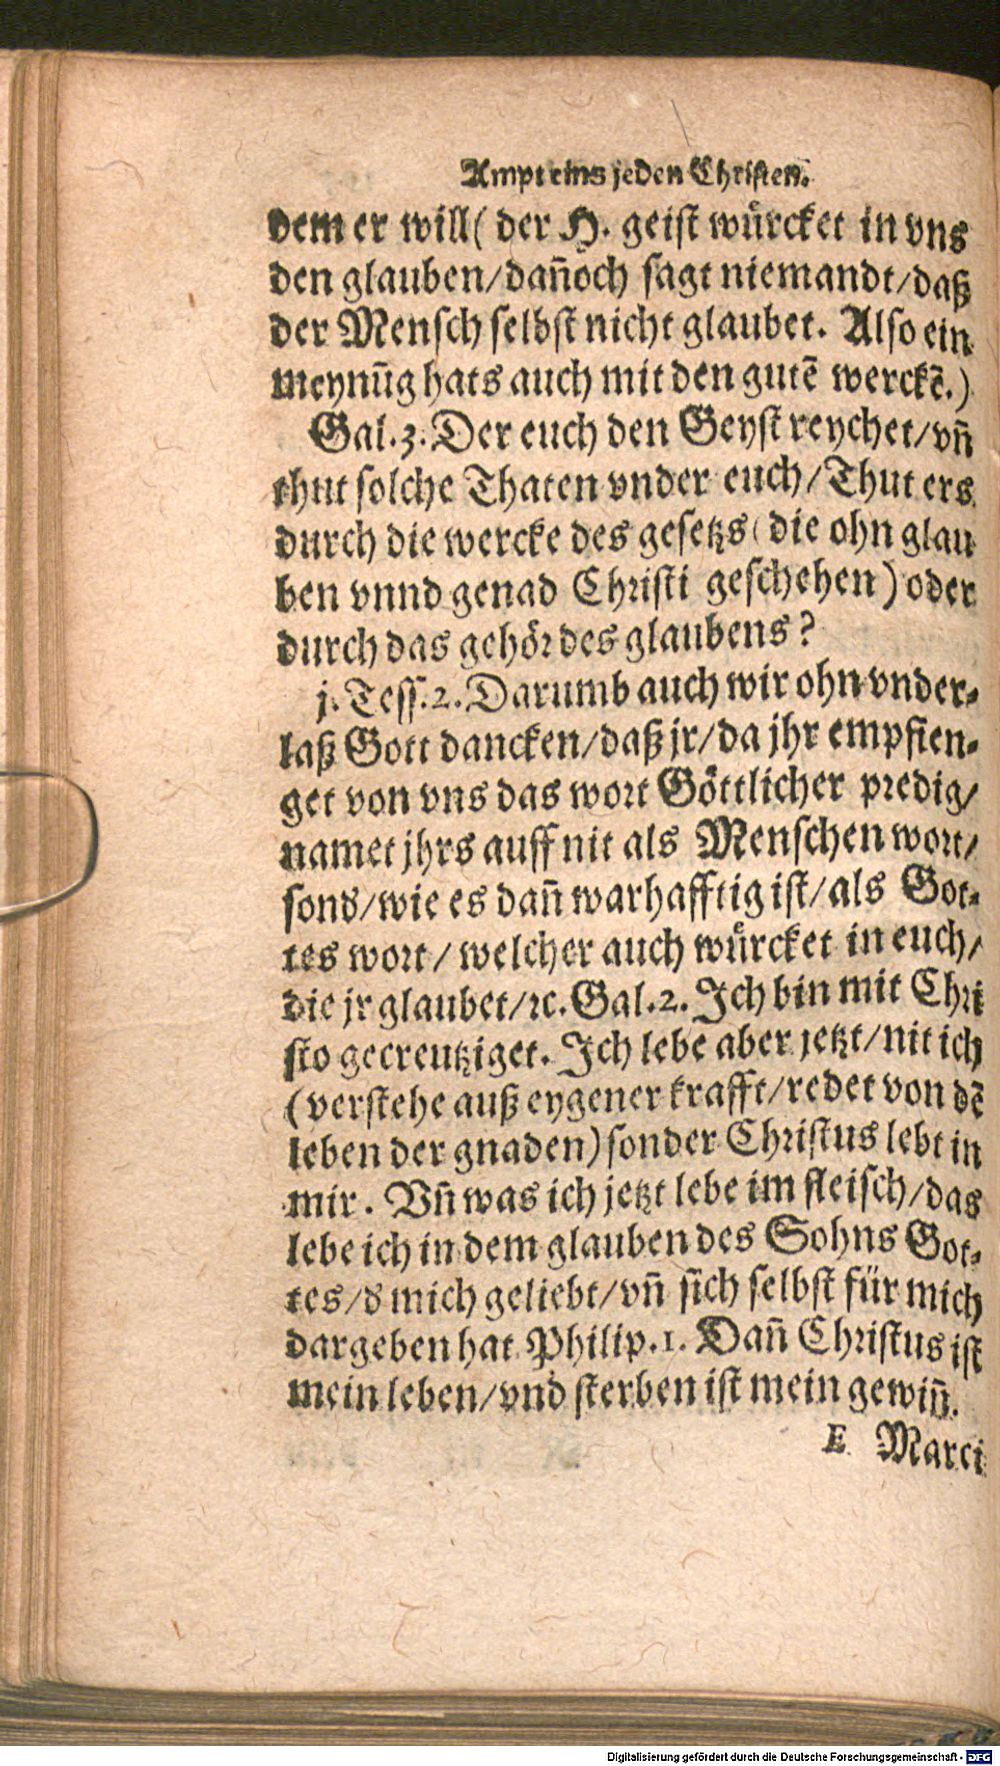 Ampt eins jeden Christen.
dem er will( der H. geist würcket in vns
den glauben/dañoch sagt niemandt/daß
der Mensch selbst nicht glaubet. Also ein
meynũg hats auch mit den gutē werckē.)
Gal.3. Der euch den Geyst reychet/vñ
thut solche Thaten vnder euch/Thut ers
durch die wercke des gesetzs( die ohn glau
ben vnnd genad Christi geschehen) oder
durch das gehör des glaubens?
j. Tess.2. Darumb auch wir ohn vnder-
laß Gott dancken/daß jr/da jhr empfien-
get von vns das wort Göttlicher predig/
namet jhrs auff nit als Menschen wort/
sond/wie es dañ warhafftig ist/als Got-
tes wort/ welcher auch würcket in euch/
die jr glaubet/ꝛc. Gal.2. Ich bin mit Chri
sto gecreutziget. Ich lebe aber jetzt/nit ich
(verstehe auß eygener krafft/redet von dē
leben der gnaden) sonder Christus lebt in
mir. Vñ was ich jetzt lebe im fleisch/das
lebe ich in dem glauben des Sohns Got-
tes/d mich geliebt/vñ sich selbst für mich
dargeben hat. Philip.1. Dañ Christus ist
mein leben/vnd sterben ist mein gewiñ.
E Marci
Digitalisierung gefördert durch die Deutsche Forschungsgemeinschaft - DFG